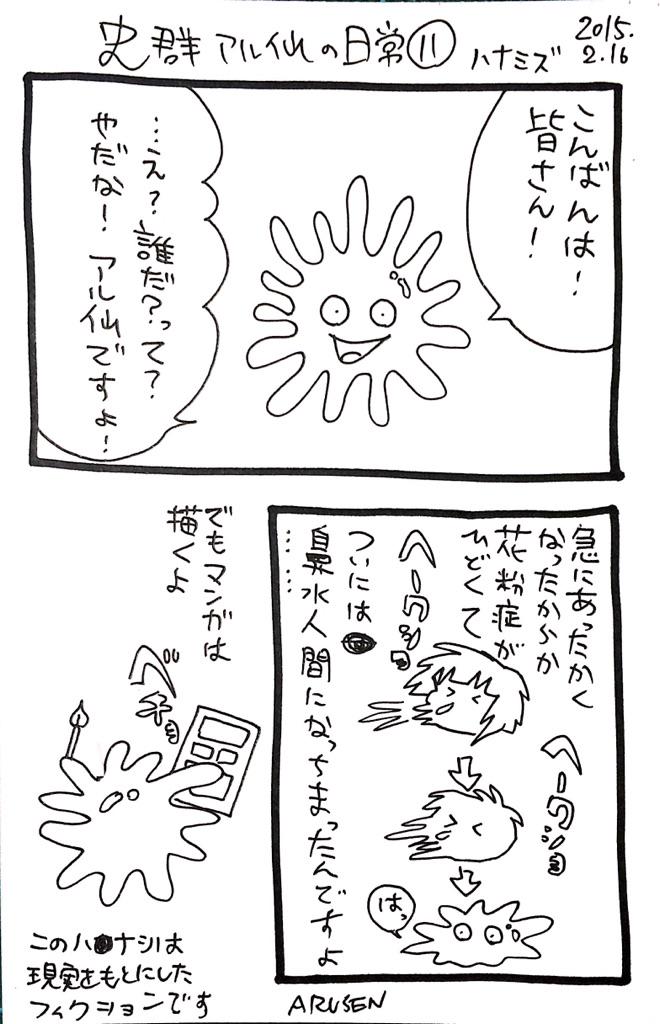 史群アル仙の日常⑪ ハナミズ
2015.
2.16
こんばんは!
皆さん!
…え?誰だ?って?
やだな!アル仙ですよ!
急にあったかく
なったからか
花粉症が
ひどくて
ヘークション
ついには
鼻水人間になっちまったんですよ
……
ヘークション
はっ
でもマンガは
描くよ
ベチョ
このハナシは
現実をもとにした
フィクションです
ARUSEN